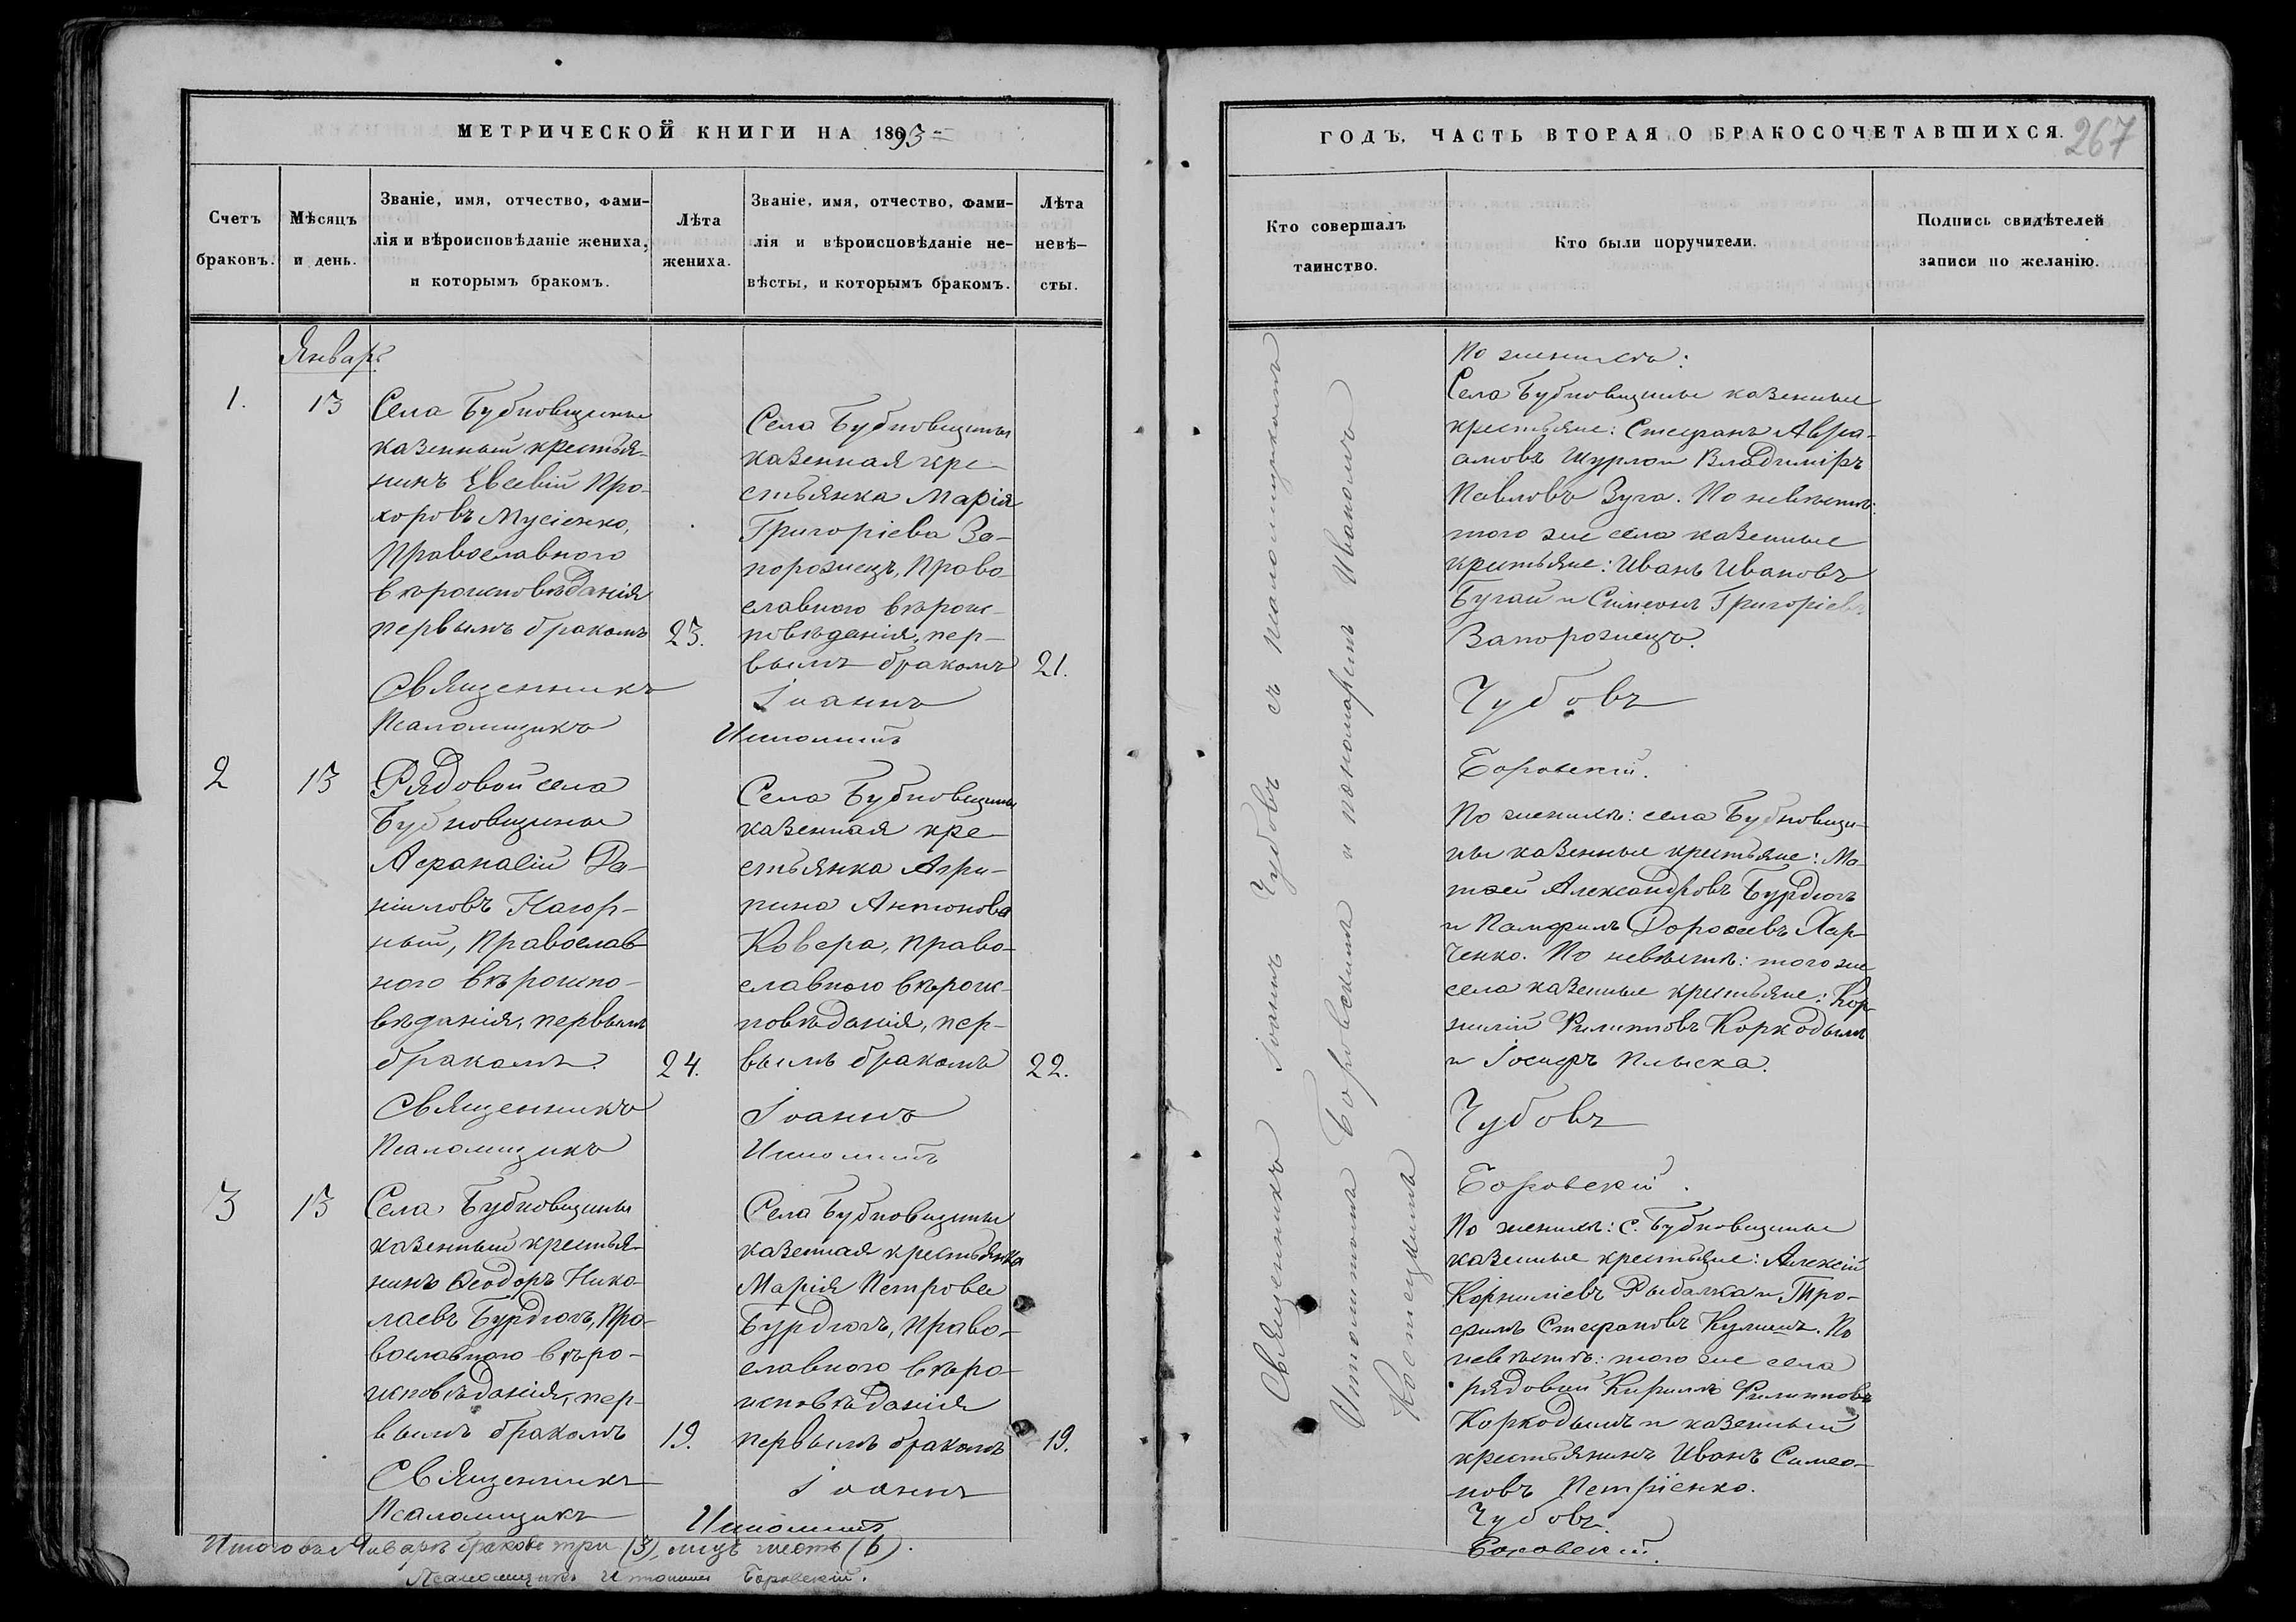 МЕТРИЧЕСКОЙ КНИГИ НА 1893
Счетъ
браковъ.
Мѣсяцъ
и день.
Званіе, имя, отчество, фами-
лія и вѣроисповѣданіе жениха,
и которымъ бракомъ.
Лѣта
жениха.
Званіе, имя, отчество, фами-
лія и вѣроисповѣданіе не-
вѣсты, и которымъ бракомъ.
Лѣта
невѣ-
сты.
Январь
1.
13
Села Бубновщины
казенный крестья-
нинъ Евсевій Про-
хоровъ Мусіенко,
Православнаго
вѣроисповѣданія
первымъ бракомъ
23.
Села Бубновщины
казенная кре-
стьянка Марія
Григоріева За-
порожецъ, Право-
славного вѣроис-
повѣданія, пер-
вымъ бракомъ
21.
Священникъ Іоаннъ
Псаломщикъ
2
13
Рядовой села
Бубновщины
Афанасій Да-
ніиловъ Нагор-
ный, Православ-
ного вѣроиспо-
вѣданія, первымъ
бракомъ.
24.
Села Бубновщины
казенная кре-
стьянка Агри-
пина Антонова
Ковера, право-
славного вѣроис-
повѣданія, пер-
вымъ бракомъ
22.
Священникъ Іоаннъ
Псаломщикъ
3
13
Села Бубновщины
казенный крестья-
нинъ Ѳеодоръ Нико-
лаевъ Бурдюгъ, Пра-
вославного вѣро-
исповѣданія, пер-
вымъ бракомъ
19.
Села Бубновщины
казенная крестьянка
Марія Петрова
Бурдюгъ, право-
славного вѣро-
исповѣданія
первымъ бракомъ
19.
Священникъ Іоаннъ
Псаломщикъ
Итого въ Январѣ браковъ три (3), лицъ шесть (6).
Псаломщикъ Боровскій.
ГОДЪ, ЧАСТЬ ВТОРАЯ О БРАКОСОЧЕТАВШИХСЯ.
267
Кто совершалъ
таинство.
Кто были поручители.
Подпись свидѣтелей
записи по желанію.
Священникъ Іоаннъ Чубовъ съ псаломщикомъ
Боровскимъ и пономаремъ Иваномъ
По женихѣ:
Села Бубновщины казенные
крестьяне: Стефанъ Авра-
амовъ Шурло и Владиміръ
Павловъ Зуга. По невѣстѣ:
того же села казенные
крестьяне: Иванъ Ивановъ
Бугай и Симеонъ Григоріевъ
Запорожецъ.
Чубовъ
Боровскій.
По женихѣ: села Бубновщи-
ны казенные крестьяне: Ма-
тѳей Александровъ Бурдюгъ
и Памфилъ Дороѳеевъ Хар-
ченко. По невѣстѣ: того же
села казенные крестьяне: Кор-
нилій Филипповъ Коркодымъ
и Іосифъ Плыска.
Чубовъ
Боровскій.
По женихѣ: с. Бубновщины
казенные крестьяне: Алексій
Корниліевъ Рыбалка и Тро-
фимъ Стефановъ Кулишъ. По
невѣстѣ: того же села
рядовой Кириллъ Филипповъ
Коркодымъ и казенный
крестьянинъ Иванъ Симео-
новъ Петріенко.
Чубовъ.
Боровскій.